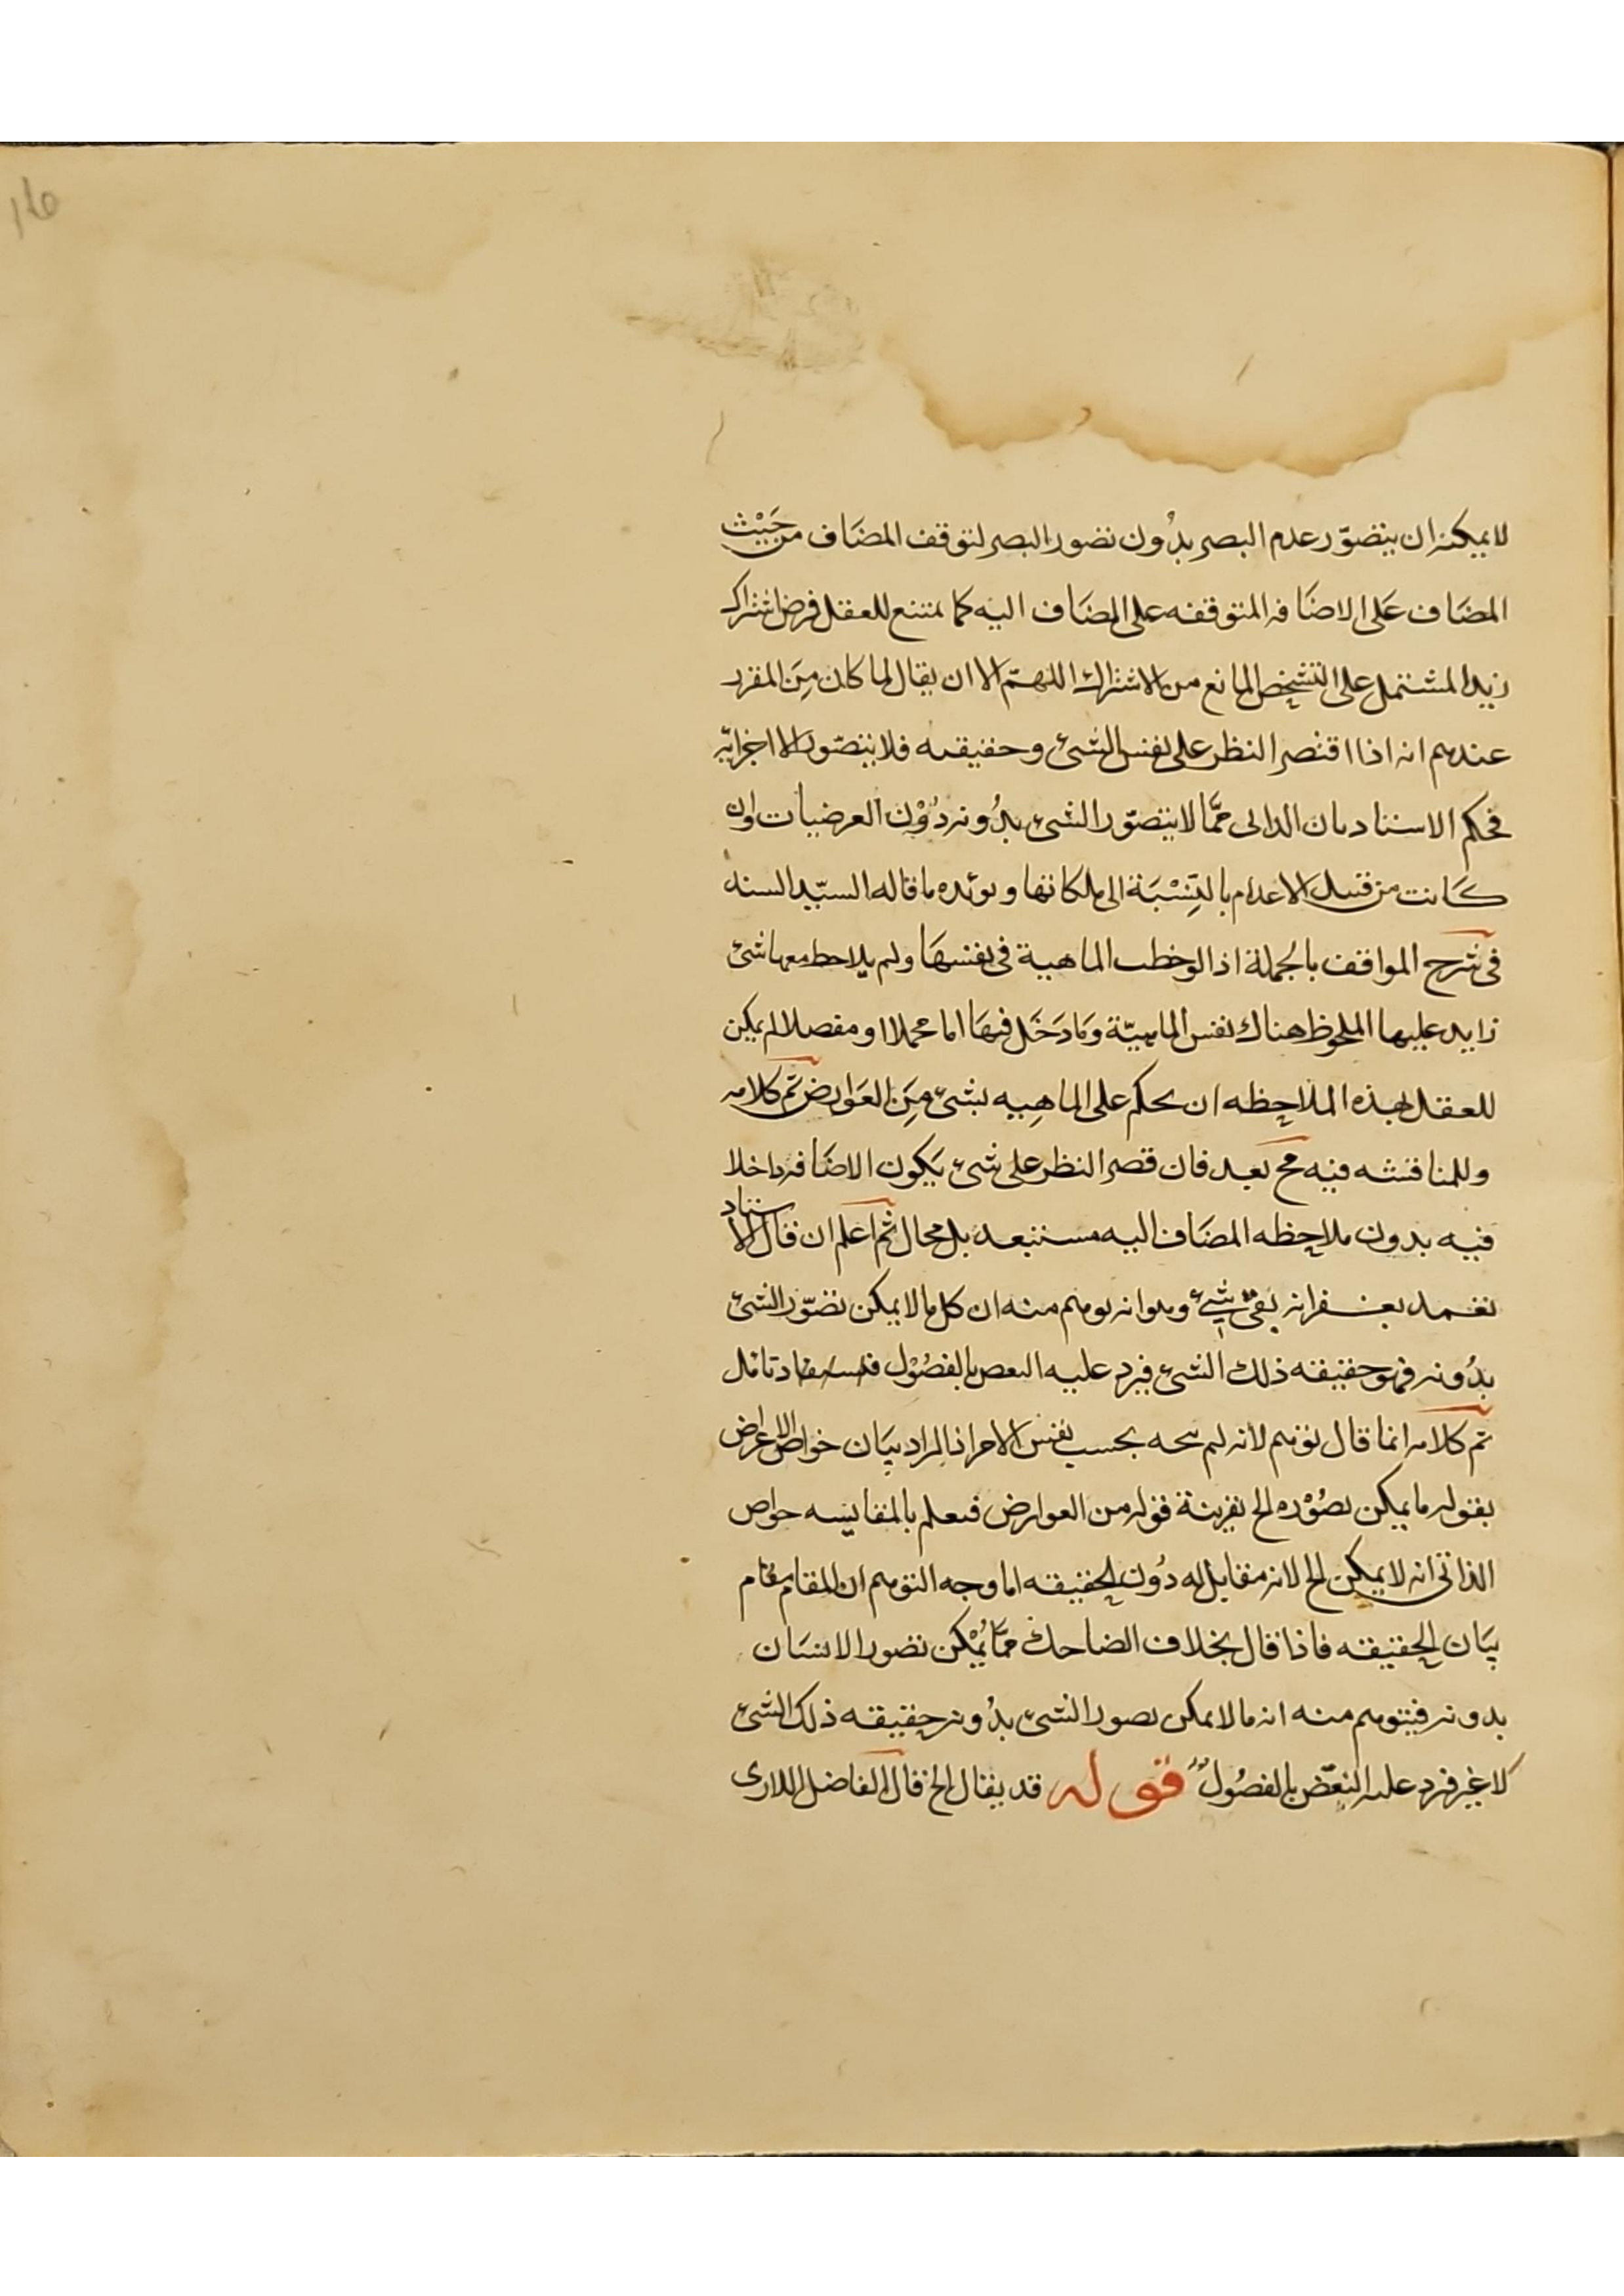 لا يمكنه ان يتصوّر عدم البصر بدُون تصور البصر لتوقف المضَاف من حَيْث
المضَاف عَلى الاضَافه المتوقفه على المضَاف اليه كما يمتنع للعقل فرض اشتراك
زيد المشتمل على التشخص المانع من الاشتراك اللهمّ الا ان يقال لما كان مِنَ المقرر
عندهم انه اذا اقتصر النظر على نفس الشئ وحقيقه فلا يتصّور الا اجزائه
فحكم الاستاد بان الذاتى ممَّا لا يتصوّر الشئ بدُونه دُوْن العرضيات وان
كَانت من قبيل الاعدام بالنِسْبَة الى ملكاتها ويؤيده ما قاله السيّد السند
فى شرح المواقف بالجملة اذا لوحظت الماهية فى نفسهَا ولم يلاحظ معها شئ
زايد عليها الملحوظ هناك نفس الماهيّة وَمَا دَخَل فيهَا اما مجملا او مفصلا لم يمكن
للعقل بهذه الملاحظه ان يحكم على الماهِيه بشئ مِنَ العَوارض تم كلامه
وللمناقشه فيه مح بعد فان قصر النظر على شئ يَكون الاضَافه داخلا
فيه بدون ملاحظه المضَاف اليه مستبعد بل محال ثم اعلم ان قال الاستاد
تغمد بغفرانه بقى شئ وهو انه يوهم منه ان كل ما لا يمكن تصوّر الشئ
بدُونه فهو حقيقه ذلك الشئ فيرد عليه النقص بالفصُوْل تامل
تم كلامه انما قال توهم لانه لم بحسب نفس الامر اذ المراد بيَان خواص الاعراض
بقوله ما يمكن تصُوْره الخ بقرينة قوله من العوارض فيعلم بالمقايسه خواص
الذاتى انه لا يمكن الخ لانه مقابل له دُون الحقيقه اما وجه التوهم ان المقام مقام
بيَان الحقيقه فاذا قال بخلاف الضاحك ممّا يُمْكن تصور الانسَان
بدونه فيتوهم منه انه ما لا يمكن تصور الشئ بدُونه حقيقه ذلك الشئ
لا غير فيرد عليه النقض بالفصُول قوله قد يقال الخ قال الفاضل اللارى